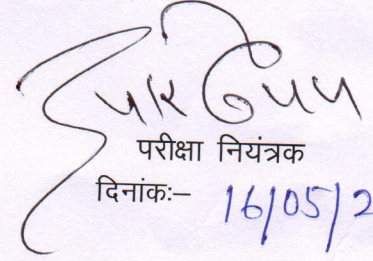 परीक्षा नियंत्रक
दिनांकः– 16/05/2